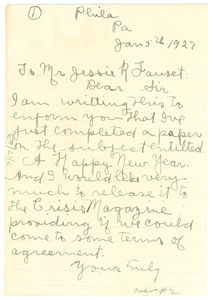 ①
Phila
Pa
Jan 5th 1927
To Mr Jessie R Fauset.
Dear Sir
I am writting this to
enform you that I've
just completed a paper
on the subject entitled
A Happy New Year.
And I would like very
much to release it to
the Crisis Magazine
providing if we could
come to some terms of
agreement.
Yours Truly